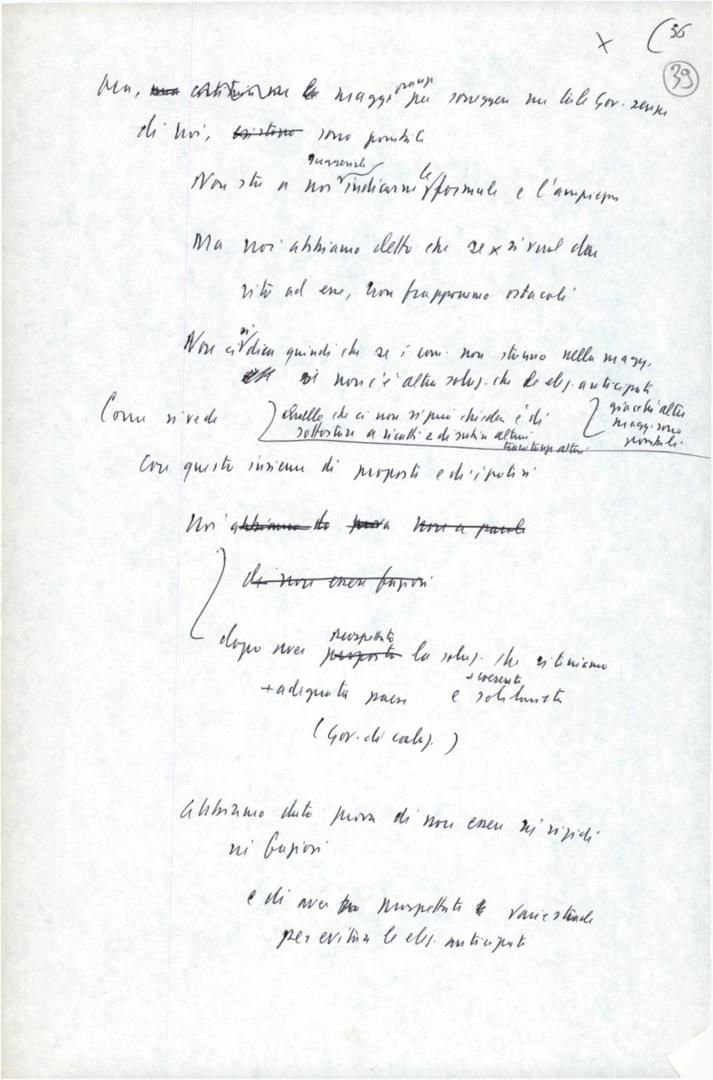 x (36
39
Ma, maggioranze per sorreggere un tale Gov. senza
di noi, esistono sono possibili
Non sta a noi indicarne le formule e l'ampiezza
Ma noi abbiamo detto che se x si vuol dar
vita ad esse, non frapporremo ostacoli
Non ci si dica quindi che se i com. non stanno nella magg.
non c'è altra soluz. che le elez. anticipate
Come si vede
Quello che ci non si può chiedere è di
sottostare a ricatti e di subire altrui
giacché altre
magg. sono
possibili.
Con questo insieme di proposte e di ipotesi
Noi abbiamo da prova non a parole
di non essere faziosi
dopo aver proposto prospettato la soluz. che riteniamo
+ adeguata paese e + coerente
(Gov. di coaliz.)
Abbiamo dato prova di non essere né rigidi
né faziosi
e di aver prospettato varie strade
per evitare le elez. anticipate